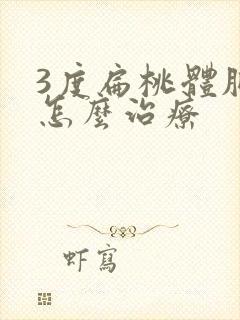 3度扁桃體
怎麼治療
虾寫